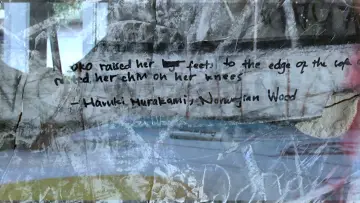 raised her feet to the edge of the
her chin on her knees
- Haruki Murakami, Norwegian Wood